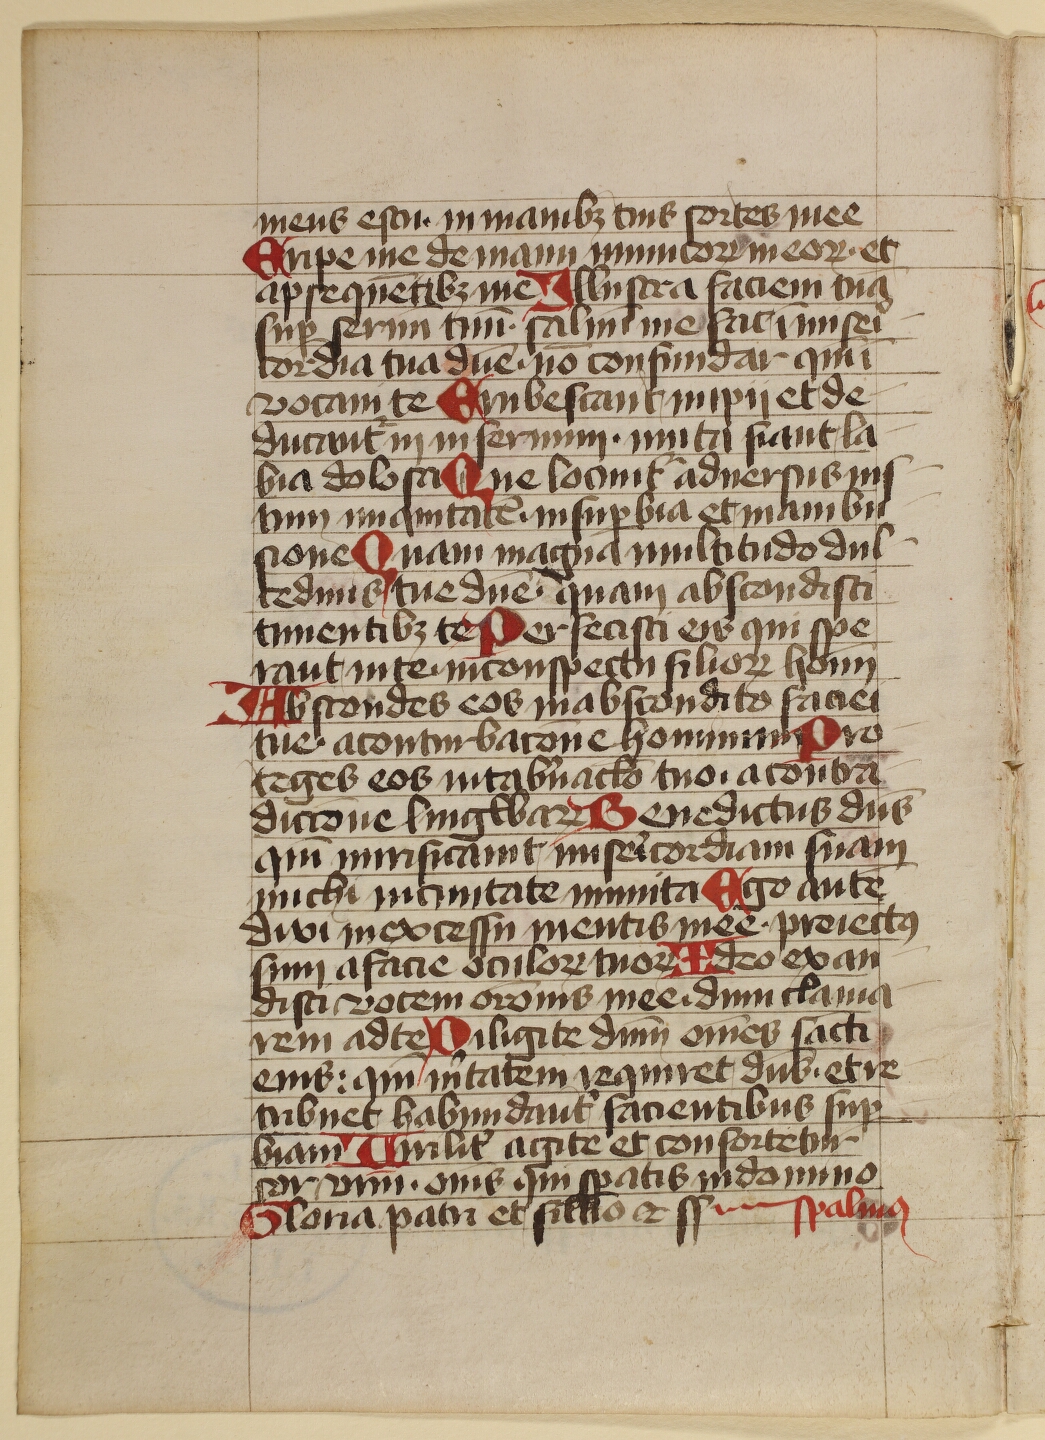 meus es tu. in manibꝫ tuis sortes mee
Eripe me de manu inimicoꝝ meoꝝ. et
a ꝑsequētibꝫ me Illustra faciem tuā
suꝑ seruū tuū. saluū me fac ī misei
cordia tua dn̄e. nō confundar qm̄ ī
vocaui te Erubescant impij et de
ducant᷑ in infernum. muta fiant la
bia dolosa Que locunt᷑ aduersus ius
tum iniquitatē. in suꝑbia et in ambu
sione Quam magna multitudo dul
cedinis tue dn̄e. quam abscondisti
timentibꝫ te Perfecisti eis qui spe
rant in te. in conspectu filioꝝ homī
Abscondes eos in abscondito faciei
tue. a conturbacōne hominum Pro
teges eos in tab̉nac̄lo tuo. a contra
diccōne lingwaꝝ Benedictus dn̄s
qm̄ mirificauit miseīcordiam suam
michi in ciuitate munita Ego autē
dixi in excessu mentis mee. proiectus
sum a facie oculoꝝ tuoꝝ Ideo exau
disti vocem orōnis mee. dum clama
rem ad te Diligite dnm̄ om̄es sācti
eius: qm̄ v̉itatem requiret dn̄s. et re
tribuet habundant᷑ facientibus suꝑ
biam Virilit᷑ agite et confortetur
cor vrm̄. om̄s qui sꝑatis in domino
Gloria patri et filio et ss psalmus